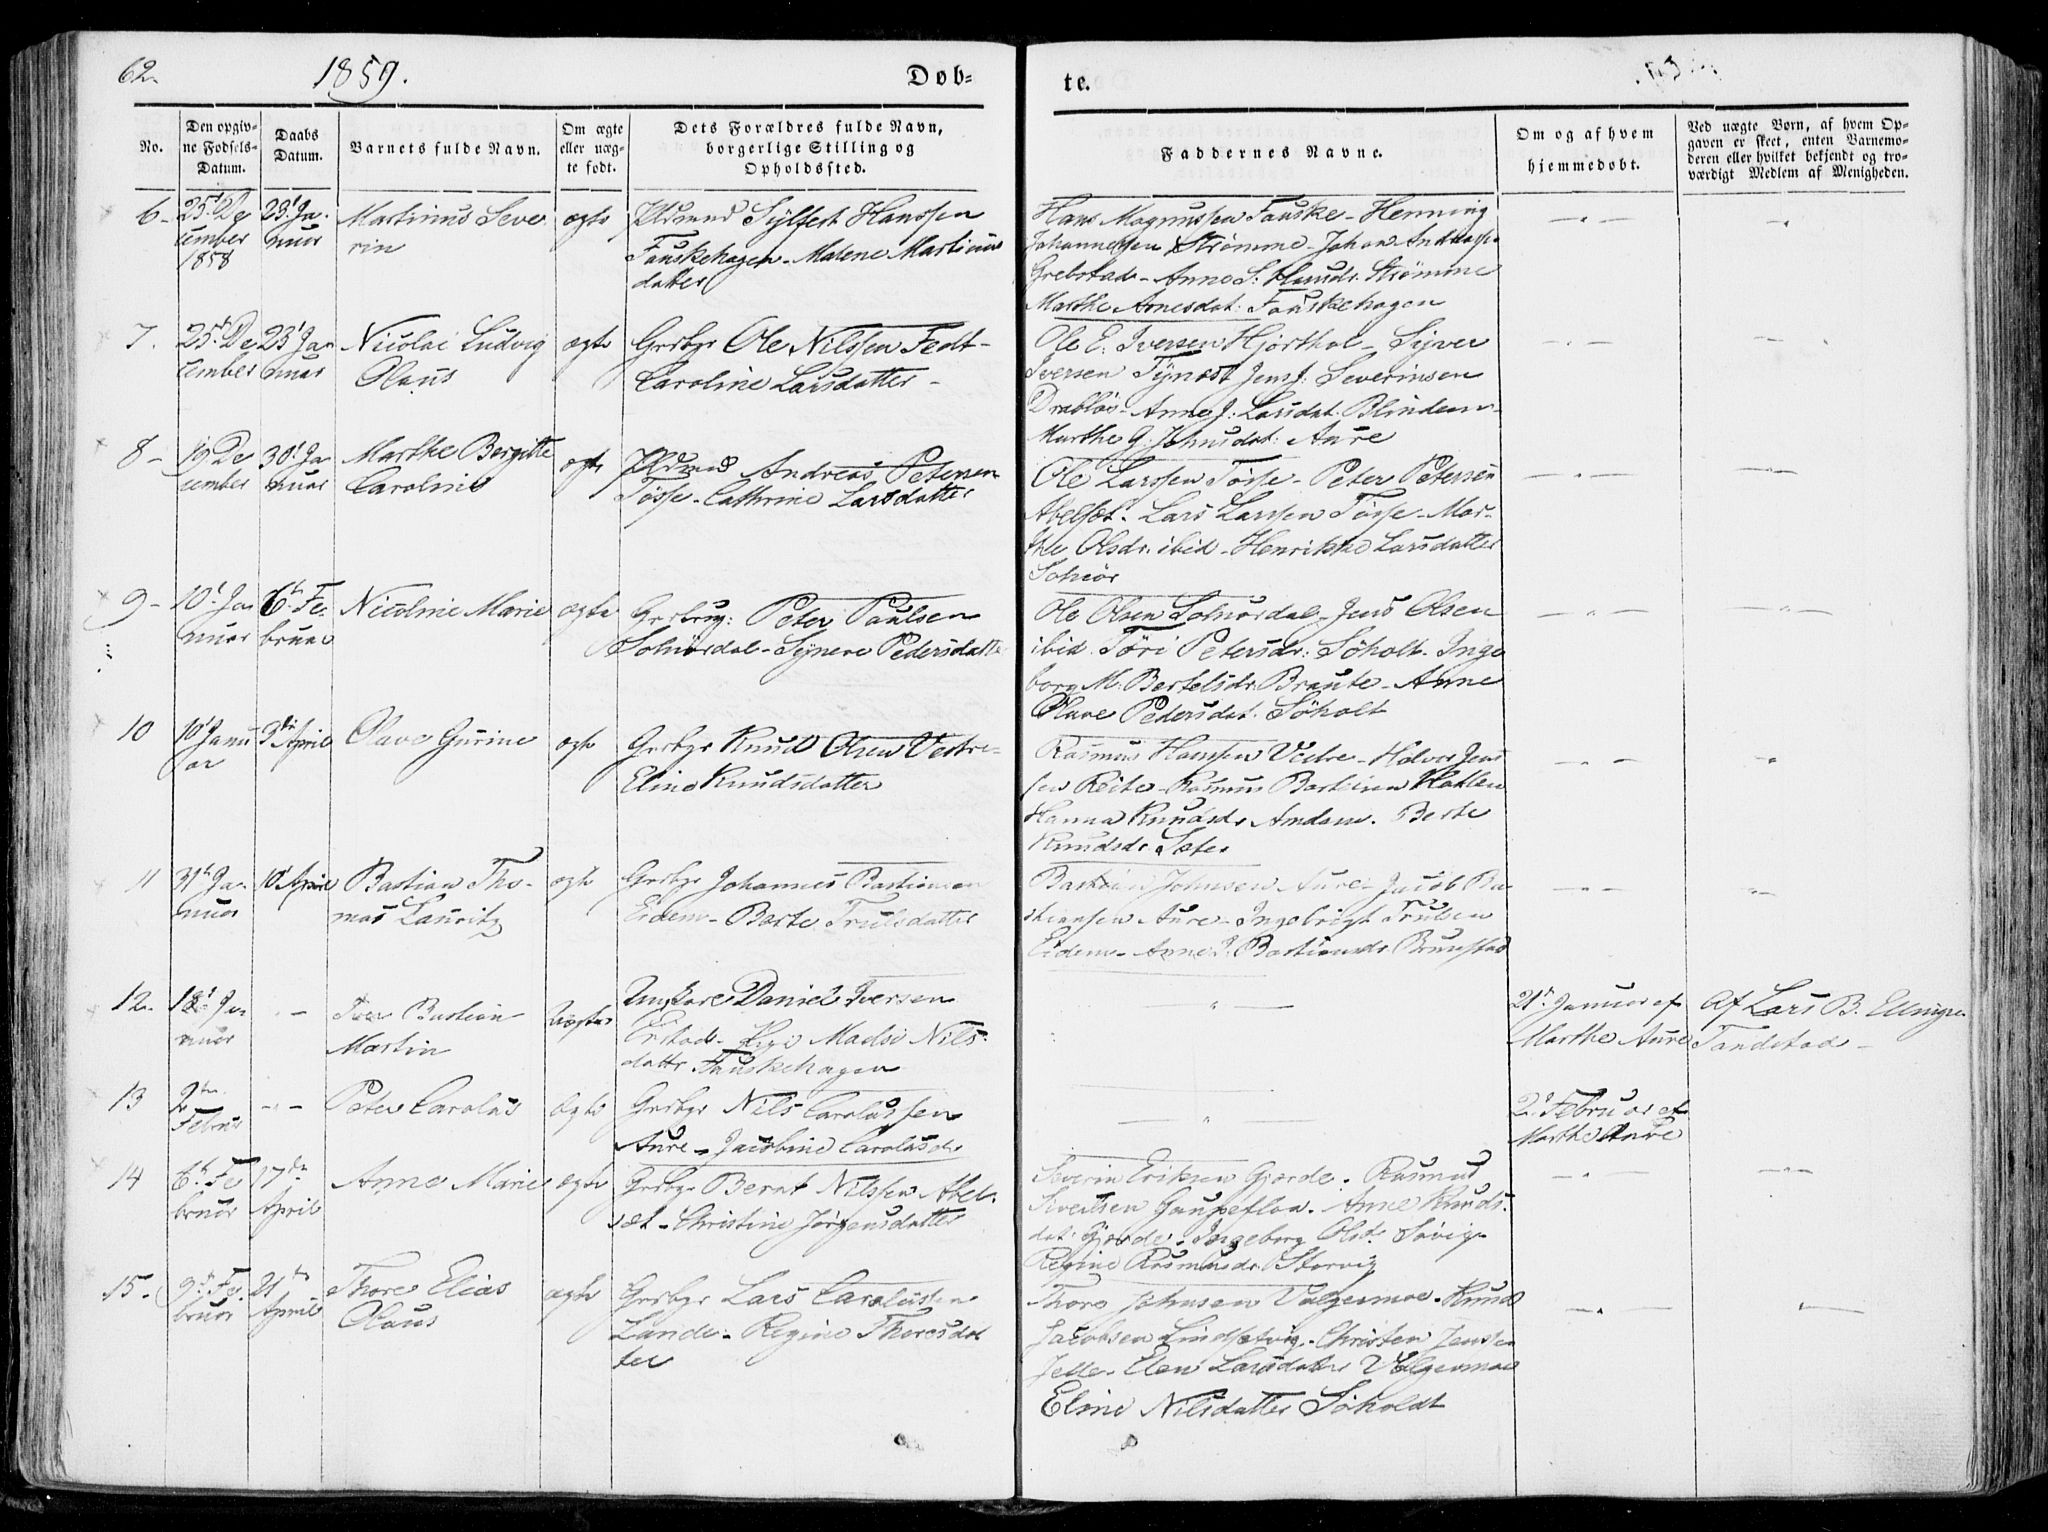 62.
1859.
Døb-
te.
No.
Den opgiv-
ne Fødsels-
Datum.
Daabs
Datum.
Barnets fulde Navn.
Om ægte
eller uæg-
te født.
Dets Forældres fulde Navn,
borgerlige Stilling og
Opholdssted.
Faddernes Navne.
Om og af hvem
hjemmedøbt.
Ved uægte Børn, af hvem Op-
gaven er skeet, enten Barnemo-
deren eller hvilket bekjendt og tro-
værdigt Medlem af Menigheden.
6-
25de De
cember
1858
23d Ja-
nuar
Martinus Seve
rin
ægte
Sylfest Hanssen
Fauskehagen - Malene Martinus
datter
Hans Magnussen Fauske - Henning
Johannessen Strømme - Johan Andreass.
Grebstad - Anne S. Hansdr. Strømme
Marthe Arnesdat. Fauskehagen
7.
25de De
cember
23d Ja
nuar
Nicolai Ludvig
Olaus
ægte
Grdbgr Ole Nilssen Fedt-
Caroline Larsdatter -
Ole E. Iversen Hjorthol - Syver
Iversen Tynæs Jens J. Severinsen
Drabløs - Anne J. Larsdat. Blindem -
Marthe G. Johnsdat. Aure
8-
19 De
cember
30d Ja
nuar
Marthe Bergitte
Caroline
ægte
Andreas Petersen
Tøsse - Cathrine Larsdatter
Ole Larssen Tøsse - Peter Petersen
Abelsæt. Lars Larssen Tøsse - Mar-
the Olsdr. ibid - Henrikke Larsdatter
Solnør
9-
10d Ja
nuar
6te Fe
bruar
Nicoline Marie
ægte
Grdbrug: Peter Paulsen
Solnørdal - Synere Pedersdatter
Ole Olsen Solnørdal - Jens Olsen
ibid. Tøri Petersdr. Søholt - Inge
borg M. Bertelsdr. Braute - Anne
Olave Pedersdat. Søholt
10
10d Janu
ar
3die April
Olave Gurine
ægte
Grdbgr Knud Olsen Vestre-
Eline Knudsdatter
Rasmus Hanssen Vestre - Halvor Jens
sen Reite - Rasmus Bastiansen Hatlen
Hanna Knudsdr Amdam. Berte
Knudsdr. Sæter
11
31te Ja-
nuar
10d April
Bastian Tho-
mas Lauritz
ægte
Grdbgr Johannes Bastiansen
Eidem - Berte Trulsdatter
Bastian Johnsen Aure - Jacob Ba-
stiansen Aure - Ingebrigt Trulsen
Eidem - Anne P. Bastiansdr Brunstad
12-
18d Ja
nuar
- -
Iver Bastian
Martin
Uægte
Ungkarl Daniel Iversen
Erstad - Pige Madse Nils-
datter Fauskehagen
21de Januar af
Marthe Aure
Af Lars B. Ellingse
Tandstad -
13
2den
Februar
- -
Peter Carolus
Ægte
Grdbgr Nils Carolussen
Aure - Jacobine Carolusdr
2d Februar af
Marthe Aure
14
6te Fe
bruar
17de
April
Anne Marie
ægte
Grdbgr Bernt Nilssen Abel-
sæt - Christine Jørgensdatter
Severin Eriksen Gjørde. Rasmus
Sivertsen Gaupeflow. Anne Knuds-
dat. Gjørde - Ingeborg Olsdr. Søvig -
Regine Rasmusdr. Storvig
15.
9de Fe-
bruar
21de
April
Thore Elias
Olaus
ægte
Grdbgr Lars Carolussen
Lande - Regine Thoresdat
ter
Thore Johnsen Valgermoe - Knud
Jacobsen Lindsætvig - Christen Jenssen
Jelle - Elen Larsdatter Valgermoe
Eline Nilsdatter Søholdt